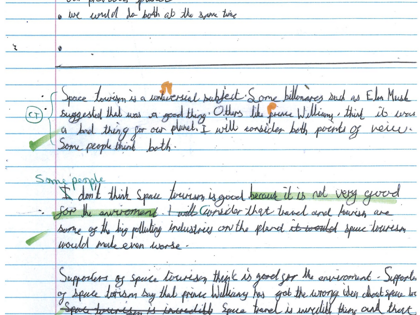 our
• we would do both at the same time
•
CT
Space tourism is a subject. Some billionaires such as Elon Musk
suggested that was a good thing. Others like prince William, think it was
a bad thing for our planet. I will consider both points of
Some people think both.
Some people
I don't think space tourism is good because it is not very good
for the enviroment. I will consider that travel and are
some of the big polluting industries on the planet it would space tourism
would make even worse.
Supporters of space tourism think is good for the enviroment.
of space torism say that prince William has got the wrong idea about space
Space tourism is incredible Space travel is thing and there